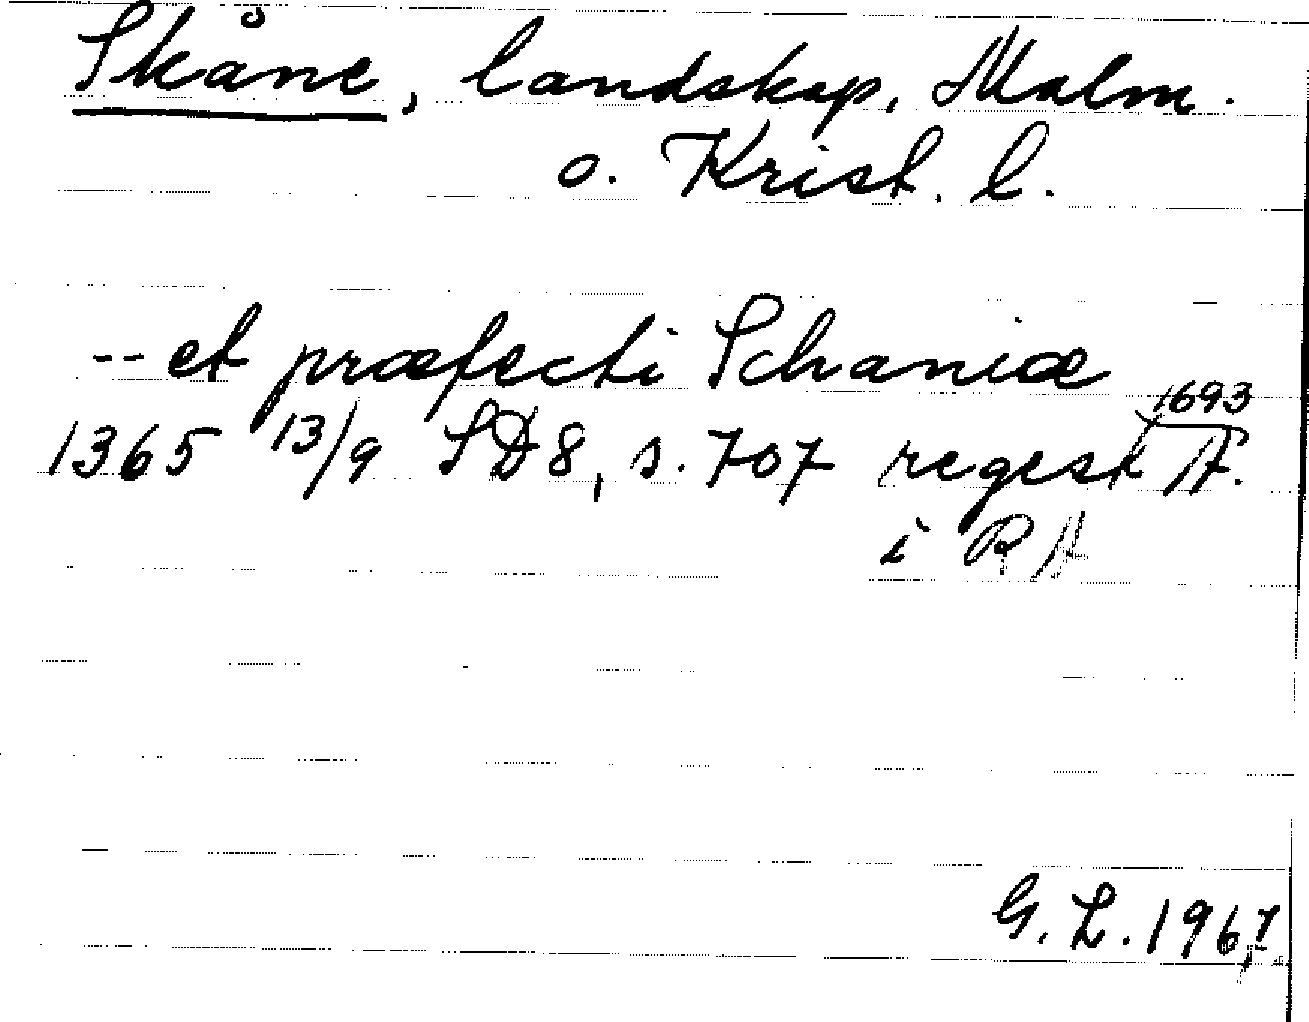 Skåne, landskap, Malm.
o. Krist. l.
-- et præfecti Schaniæ
1365 13/9 SD8, s. 707 regest 1693 A.
i RA
G. L. 1967